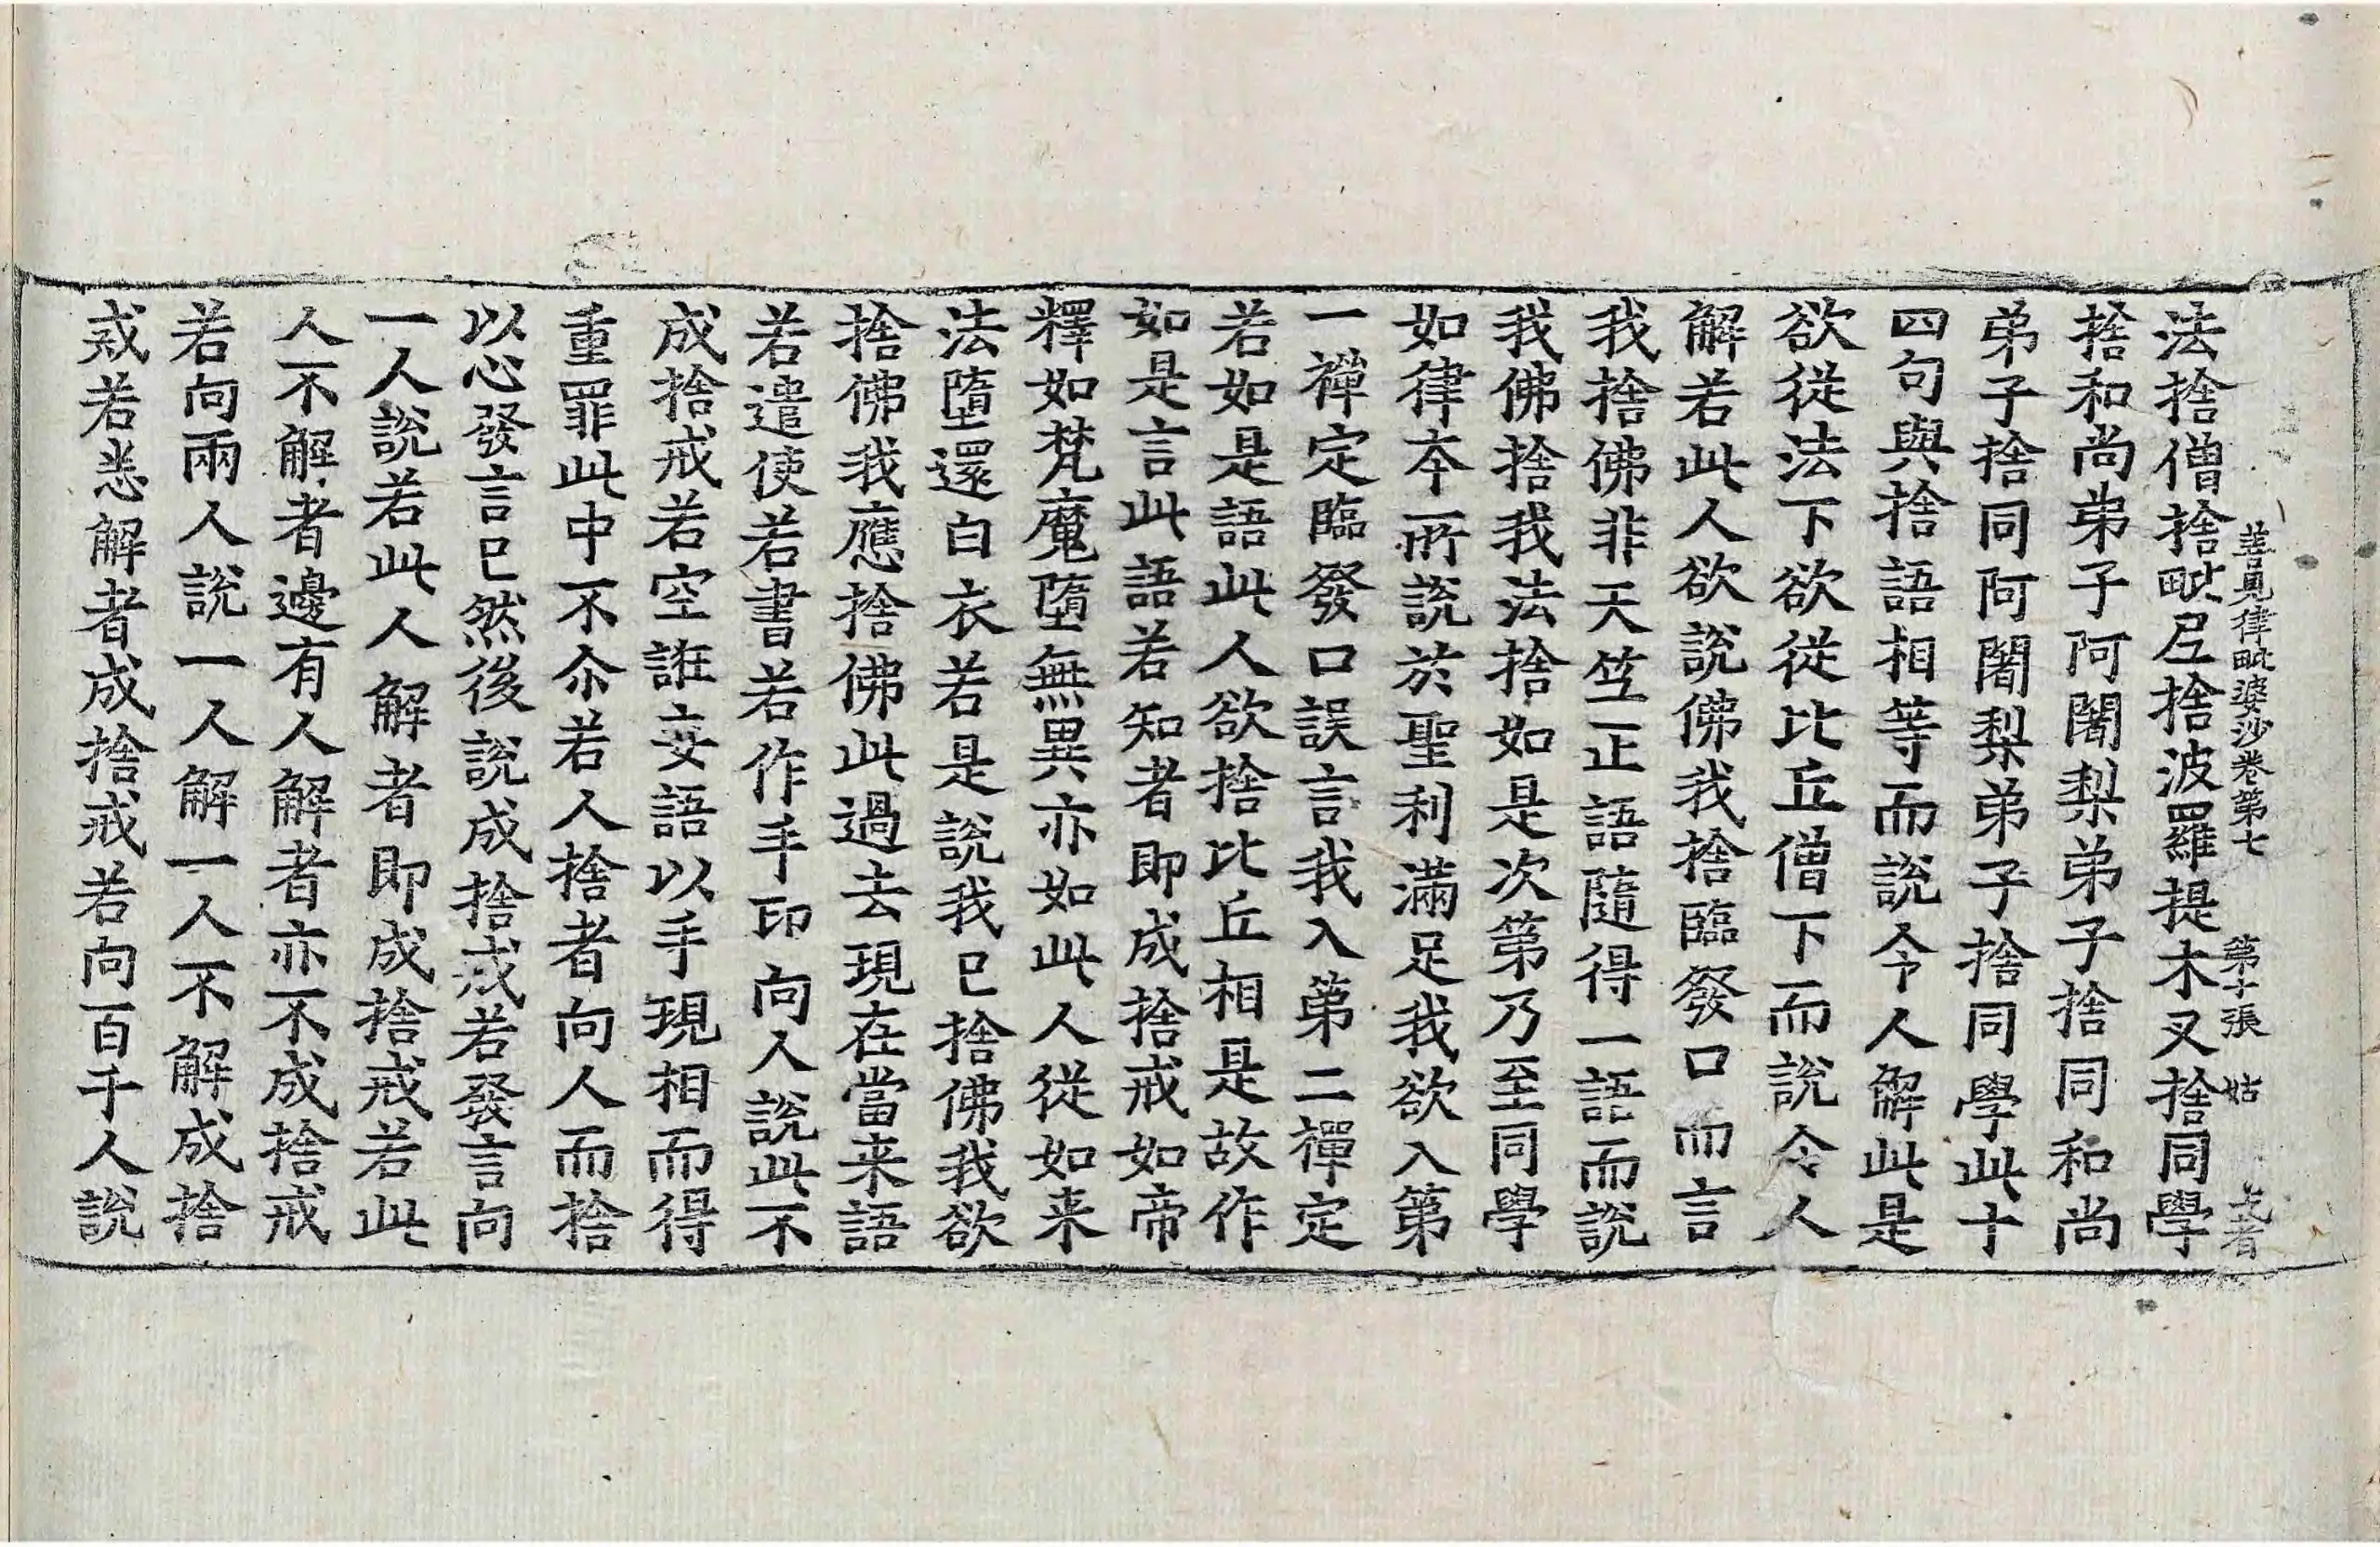 善見律毗婆沙卷第七 第十張 姑
法捨僧捨毗尼捨波羅提木叉捨同學
捨和尚弟子阿闍梨弟子捨同和尚
弟子捨同阿闍梨弟子捨同學此十
四句與捨語相等而說令人解此是
欲從法下欲從比丘僧下而說令人
解若此人欲說佛我捨臨發口而言
我捨佛非天竺正語隨得一語而說
我佛捨我法捨如是次第乃至同學
如律本所說於聖利滿足我欲入第
一禪定臨發口誤言我入第二禪定
若如是語此人欲捨比丘相是故作
如是言此語若知者即成捨戒如帝
釋如梵魔墮無異亦如此人從如来
法墮還白衣若是說我已捨佛我欲
捨佛我應捨佛此過去現在當来語
若遣使若書若作手印向人說此不
成捨戒若空誑妄語以手現相而得
重罪此中不尒若人捨者向人而捨
以心發言已然後說成捨戒若發言向
一人說若此人解者即成捨戒若此
人不解者邊有人解者亦不成捨戒
若向兩人說一人解一人不解成捨
戒若悉解者成捨戒若向百千人說